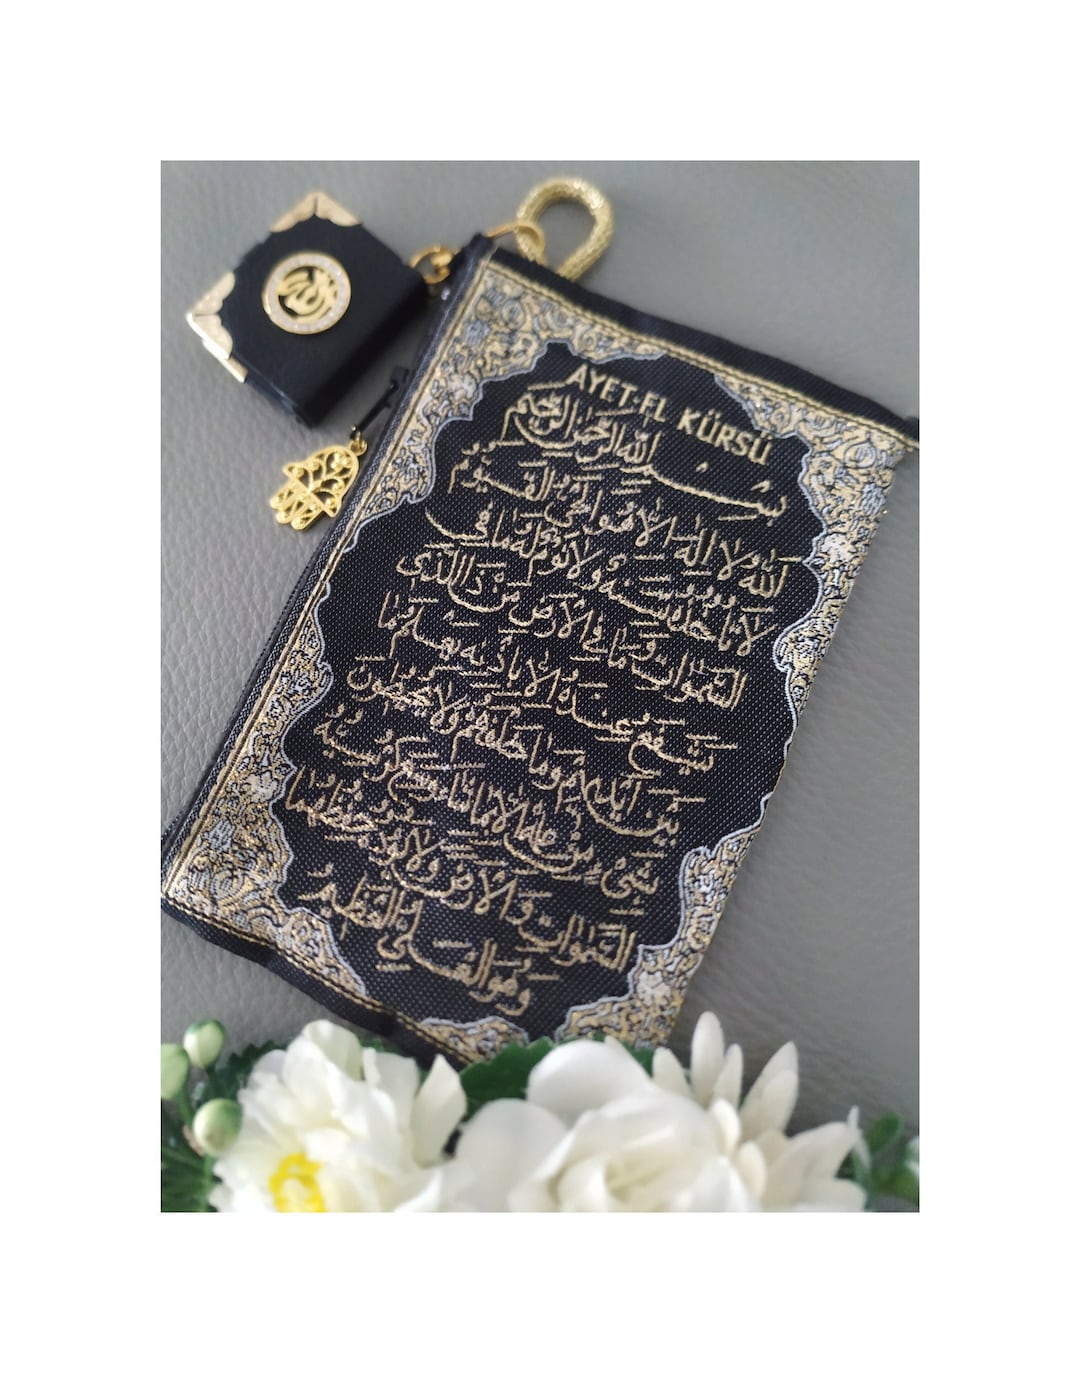 AYET-EL KÜRSÜ
بسم الله الرحمن الرحيم
الله لا اله الا هو الحي القيوم
لا تأخذه سنة ولا نوم له ما في
السموات وما في الارض من ذا الذي
يشفع عنده الا باذنه يعلم ما
بين ايديهم وما خلفهم ولا يحيطون
بشئ من علمه الا بما شاء وسع كرسيه
السموات والارض ولا يؤده حفظهما
وهو العلي العظيم